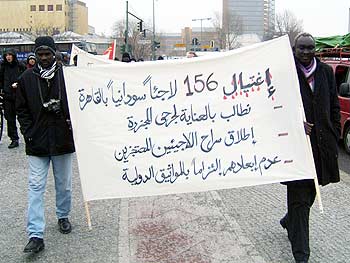 إغتيال 156 لاجئاً سودانياً بالقاهرة
نطالب بالعناية لجرحى المجزرة
- إطلاق سراح اللاجيئين المحتجزين
- عدم إبعادهم إلتزاما بالمواثيق الدولية